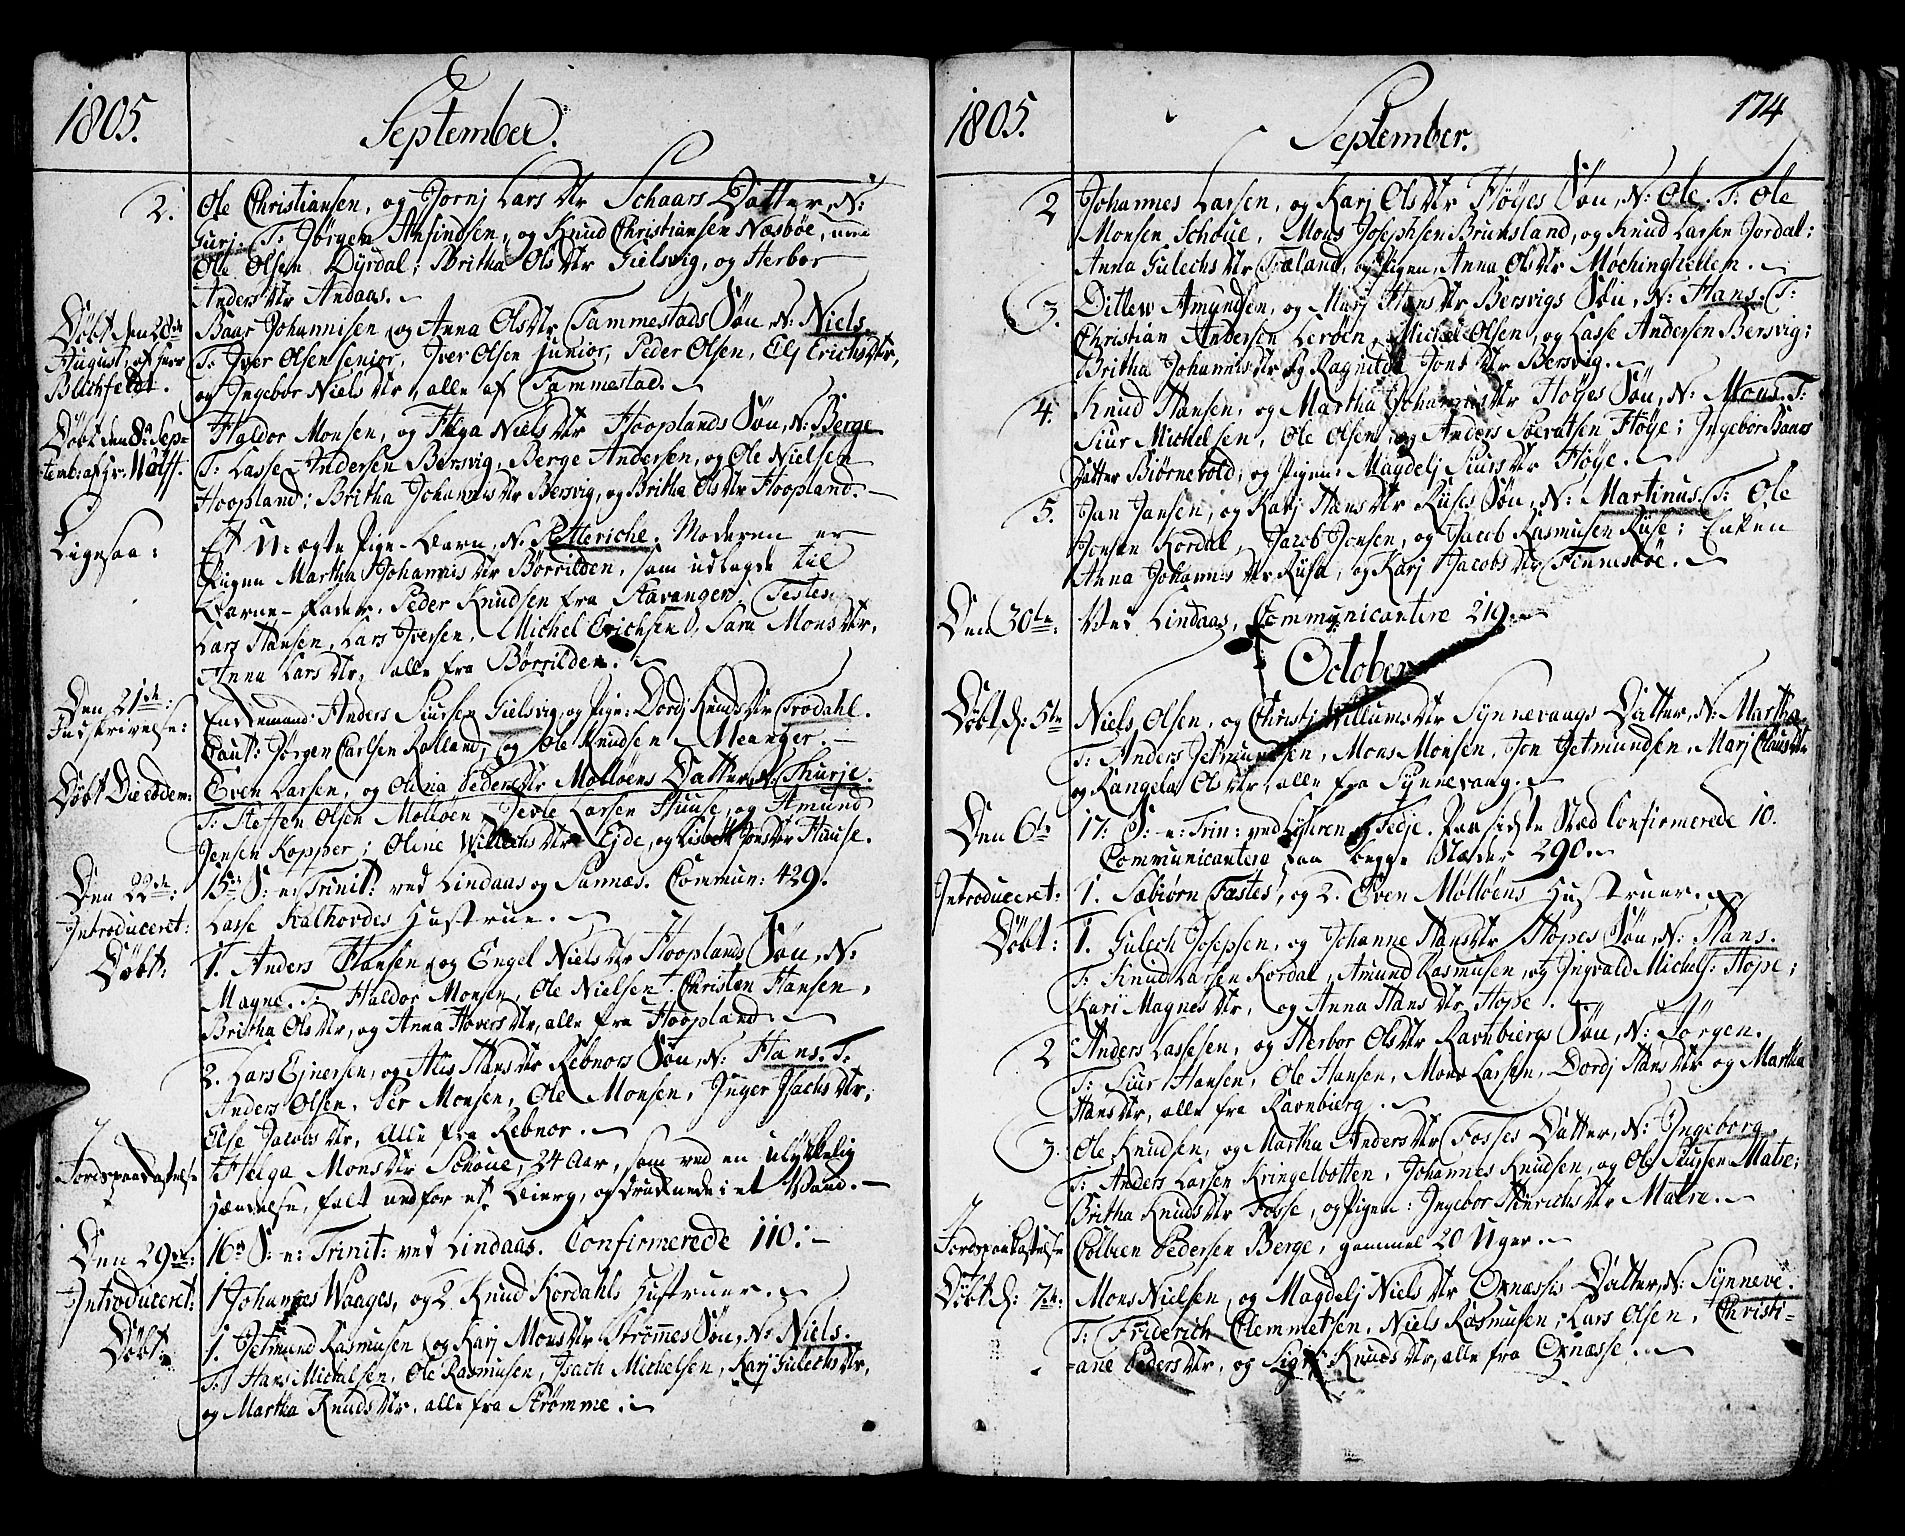 1805. September.
2. Ole Christiansen, og Jornj Lars Dtr Schaars Datter, N:
Gurj: T: Jørgen Anfindsen, og Knud Christiansen Næsbøe,
Ole Olsen Dyrdal; Britha Ols Dtr Gielsvig, og Herbor
Anders Dtr Andaas.
Døbt den 28de Baar Johannisen og Anna Ols Dtr Tammestads Søn, N: Niels.
August, af Herr T: Iver Olsen senior, Iver Olsen junior, Peder Olsen, Elj Erichs Dtr,
Blichfeldt. og Ingebor Niels Dtr, alle af Tammestad.
Døbt den 8: Sep- Haldor Monsen, og Helga Niels Dtr Hooplands Søn, N: Berge
temb: af Hr: Wolff. T: Lasse Andersen Bersvig, Berge Andersen, og Ole Nielsen
Hoopland; Britha Johannis Dtr Bersvig, og Britha Ols Dtr Hoopland.
Ligesaa: Et U-ægte Pige-Barn, N: Petteriche. Moderen er
Pigen Martha Johannis Dtr Børrilden, som udlagde til
Barne-Fader. Peder Knudsen fra Stavanger. Testes
Lars Hansen, Lars Iversen, Michel Erichsen, Sara Mons Dtr,
Anna Lars Dtr, alle fra Børrilden.
Den 21de: Enkemand: Anders Siursen Gielsvig, og Pige: Dordj Knuds Dtr Trodahl.
Inskrivelse: Caut: Jørgen Carlsen Rolland, og Ole Knudsen Meanger.
Døbt Die eodem: Even Larsen, og Olina Peders Dtr Molløens Datter, N: Thurje.
T: Steffen Olsen Molløen, Larsen Huuse, og Amund
Jensen Kopper; Oline Willechs Dtr Ejde, og Lisbeth Jons Dtr Hause.
Den 22de: 15de S: e: Trinit: ved Lindaas og Sannæs. Commun: 429.
Introduceret: Lasse Kalhovdes Hustrue.
Døbt: 1. Anders Hansen og Engel Niels Dtr Hooplands Søn, N:
Magne. T: Haldor Monsen, Ole Nielsen, Christen Hansen,
Britha Ols Dtr, og Anna Hovers Dtr, alle fra Hoopland.
2. Lars Ejnersen, og Alis Hans Dtr Rebnors Søn, N: Hans. T:
Anders Olsen, Per Monsen, Ole Monsen, Inger Isachs Dtr,
Else Jacobs Dtr, alle fra Rebnor.
Jordspaakastelse Helga Mons Dtr Schoue, 24 Aar, som ved en ulykkelig
Hændelse, falt udfor et Bierg, og druknede i et Vand.
Den 29de: 16de S: e: Trinit: ved Lindaas. Confirmerede 110:
Introduceret: 1 Johannes Waages, og 2 Knud Kordahls Hustruer.
Døbt: 1. Jetmund Rasmusen og Karj Mons Dtr Strømmes Søn, N: Niels.
T: Hans Michelsen, Ole Rasmusen, Isach Michelsen, Karj Gulechs Dtr,
og Martha Knuds Dtr, alle fra Strømme.
1805. September. 174
2 Johannes Larsen, og Karj Ols Dtr Høyes Søn, N: Ole. T: Ole
Monsen Schoue, Mons Josephsen Brunsland, og Knud Larsen Jordal:
Anna Gulechs Dtr Træland, og Pigen, Anna Ols Dtr Møchinghellen.
3. Ditlew Amundsen, og Marj Hans Dtr Bersvigs Søn, N: Hans. T:
Christian Andersen Lerøen, Michel Olsen, og Lasse Andersen Bersvig;
Britha Johannis Dtr og Ragnilde Jons Dtr Bersvig.
4. Knud Hansen, og Martha Johannis Dtr Høyes Søn, N: Mons. T:
Siur Michelsen, Ole Olsen, og Anders Siveratsen Høye; Ingebor Baars
Datter Biørnevold, og Pigen: Magdelj Siurs Dtr Høye.
5. Jan Jansen, og Karj Hans Dtr Rises Søn, N: Martinus. T: Ole
Jonsen Kordal, Jacob Jonsen, og Jacob Rasmusen Rise; Enken
Anna Johannis Dtr Risa, og Karj Jacobs Dtr Finnesbøe.
Den 30te: Ved Lindaas, Communicantere 219.
October
Døbt d: 5te Niels Olsen, og Christj Willums Dtr Synnevaags Datter, N: Martha
T: Anders Jetmundsen, Mons Monsen, Jon Jetmundsen, Marj Claus Dtr
og Rangela Ols Dtr, alle fra Synnevaag.
Den 6te 17: S: e: Trin: ved Lyseren og Fedje. Paa sidste Stæd Confirmerede 10.
Communicantere paa begge Stæder 290.
Introduceret: 1. Sæbiørn Tastes, og 2. Even Molløens Hustruer.
Døbt: 1. Gulech Josepsen, og Johanne Hans Dtr Hopes Søn, N: Hans.
T: Knud Larsen Kordal, Amund Rasmusen, og Ingvald Michels: Hope;
Karj Magnes Dtr, og Anna Hans Dtr, Hope.
2 Anders Lassesen, og Herbor Ols Dtr Ravnbiergs Søn, N: Jørgen.
T: Siur Hansen, Ole Hansen, Mons Larsen, Dordj Hans Dtr og Martha
Hans Dtr, alle fra Ravnbierg.
3. Ole Knudsen, og Martha Anders Dtr Fosses Datter, N: Ingeborg.
T: Anders Larsen Kringelbotten, Johannes Knudsen, og Ole Siursen Matre;
Britha Knuds Dtr Fosse, og Pigen: Ingebor Henrichs Dtr Matre.
Jordspaakastelse Colbien Pedersen Berge, gammel 20 Uger.
Døbt d: 7de: Mons Nielsen, og Magdelj Niels Dtr Oxnæssis Datter, N: Synneve.
T: Friderich Clemmetsen, Niels Rasmusen, Lars Olsen, Christi-
-ane Peders Dtr, og Sigrj Knuds Dtr, alle fra Oxnæsse.